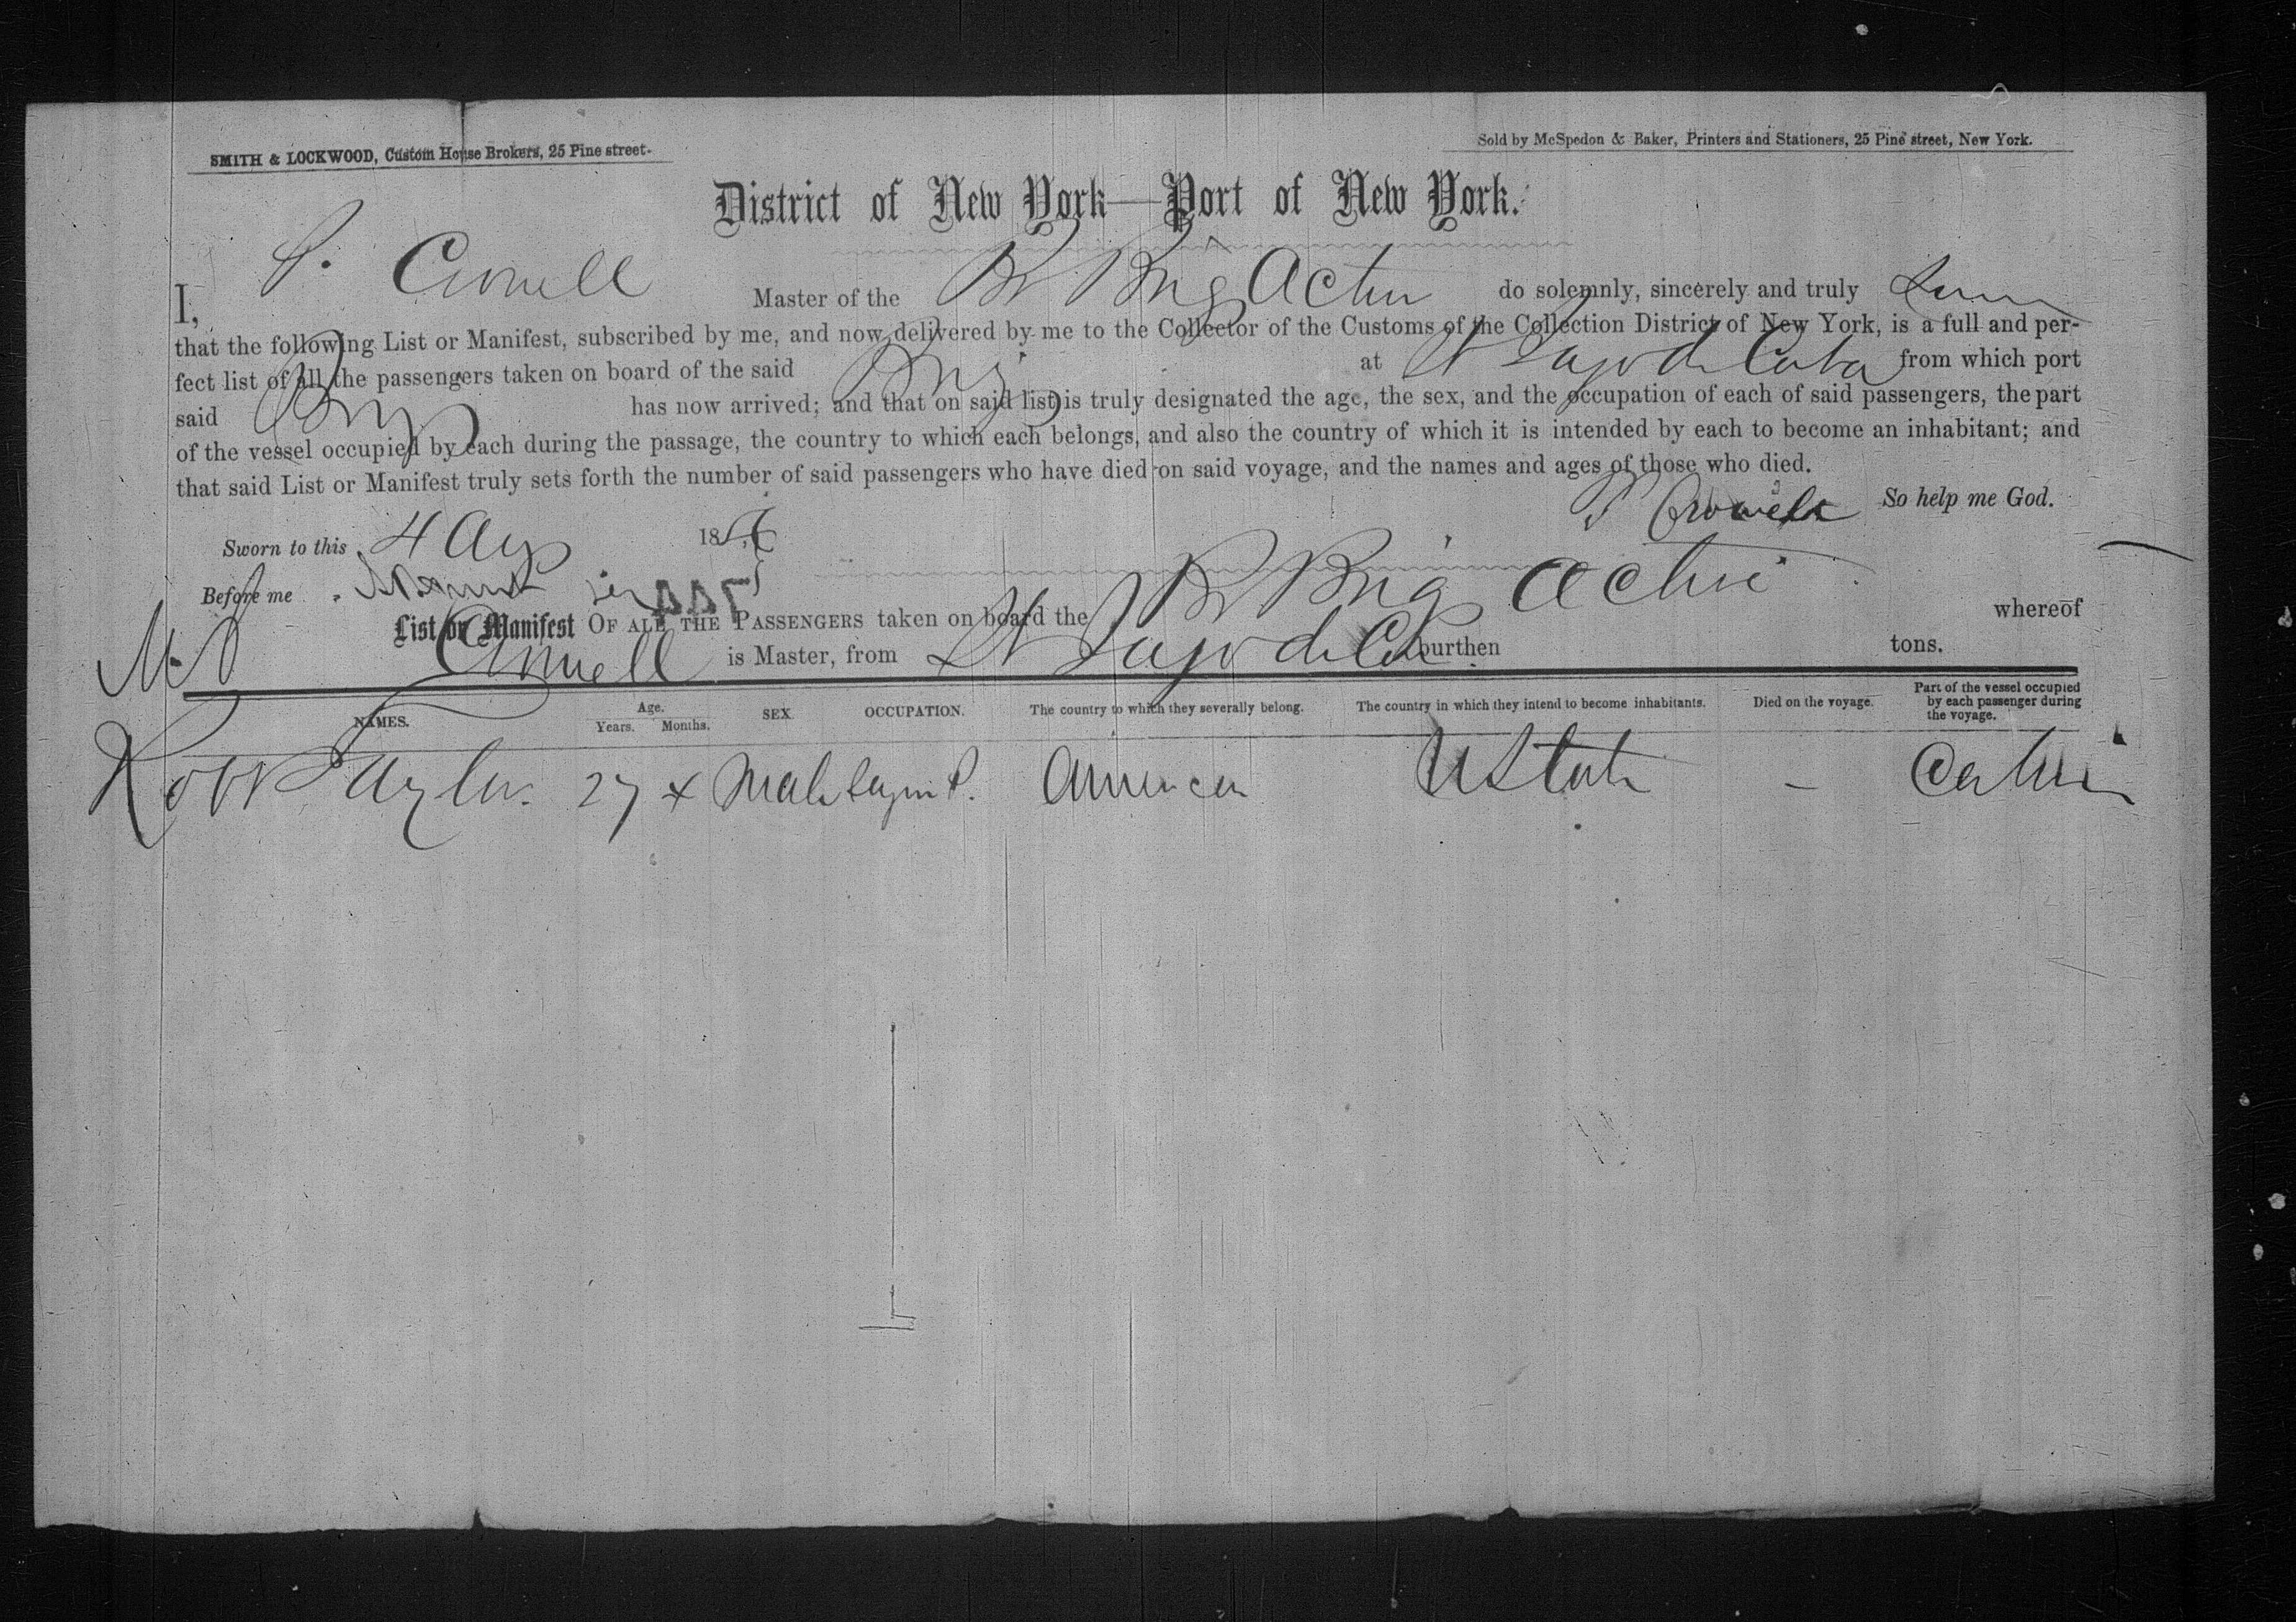 SMITH & LOCKWOOD, Custom House Brokers, 25 Pine street.
Sold by McSpedon & Baker, Printers and Stationers, 25 Pine street, New York.
District of New York—Port of New York.
I, P. Crowell Master of the Br Brig Active do solemnly, sincerely and truly Swear
that the following List or Manifest, subscribed by me, and now delivered by me to the Collector of the Customs of the Collection District of New York, is a full and per-
fect list of all the passengers taken on board of the said Brig at St Iago de Cuba from which port
said Brig has now arrived; and that on said list is truly designated the age, the sex, and the occupation of each of said passengers, the part
of the vessel occupied by each during the passage, the country to which each belongs, and also the country of which it is intended by each to become an inhabitant; and
that said List or Manifest truly sets forth the number of said passengers who have died on said voyage, and the names and ages of those who died.
P Crowell So help me God.
Sworn to this 4 Aug 185
Before me
List or Manifest OF ALL THE PASSENGERS taken on board the Br Brig Active whereof
Crowell is Master, from St Iago de Cuba burthen tons.
NAMES. Age. Years. Months. SEX. OCCUPATION. The country to which they severally belong. The country in which they intend to become inhabitants. Died on the voyage. Part of the vessel occupied by each passenger during the voyage.
Robt Taylor. 27 x Male American U States – Cabin